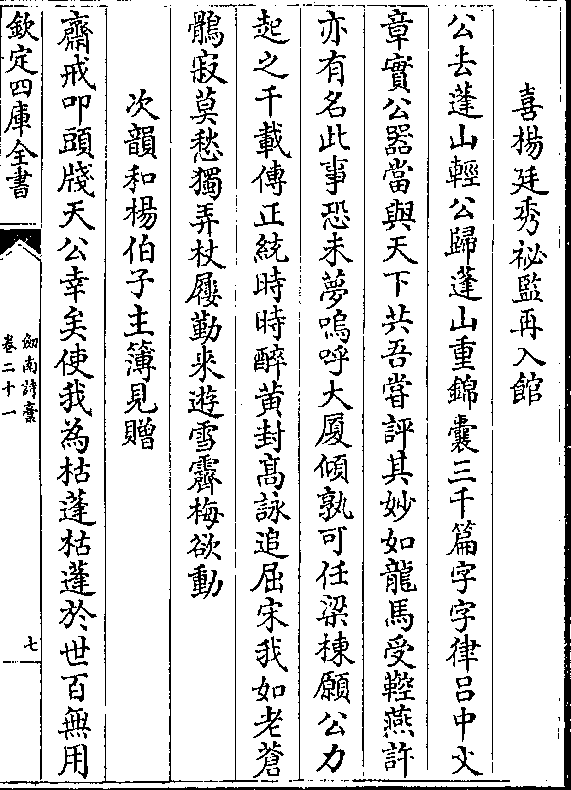 喜楊廷秀祕監再入館
公去蓬山輕公歸蓬山重錦囊三千篇字字律吕中文
章實公器當與天下共吾嘗評其妙如龍馬受鞚燕許
亦有名此事恐未夢嗚呼大厦傾孰可任梁棟願公力
起之千載傳正統時時醉黄封高詠追屈宋我如老蒼
鶻寂莫愁獨弄杖屨勤来遊雪霽梅欲動
次韻和楊伯子主簿見贈
齋戒叩頭牋天公幸矣使我為枯蓬枯蓬於世百無用
欽定四庫全書
劒南詩稾
卷二十一
七